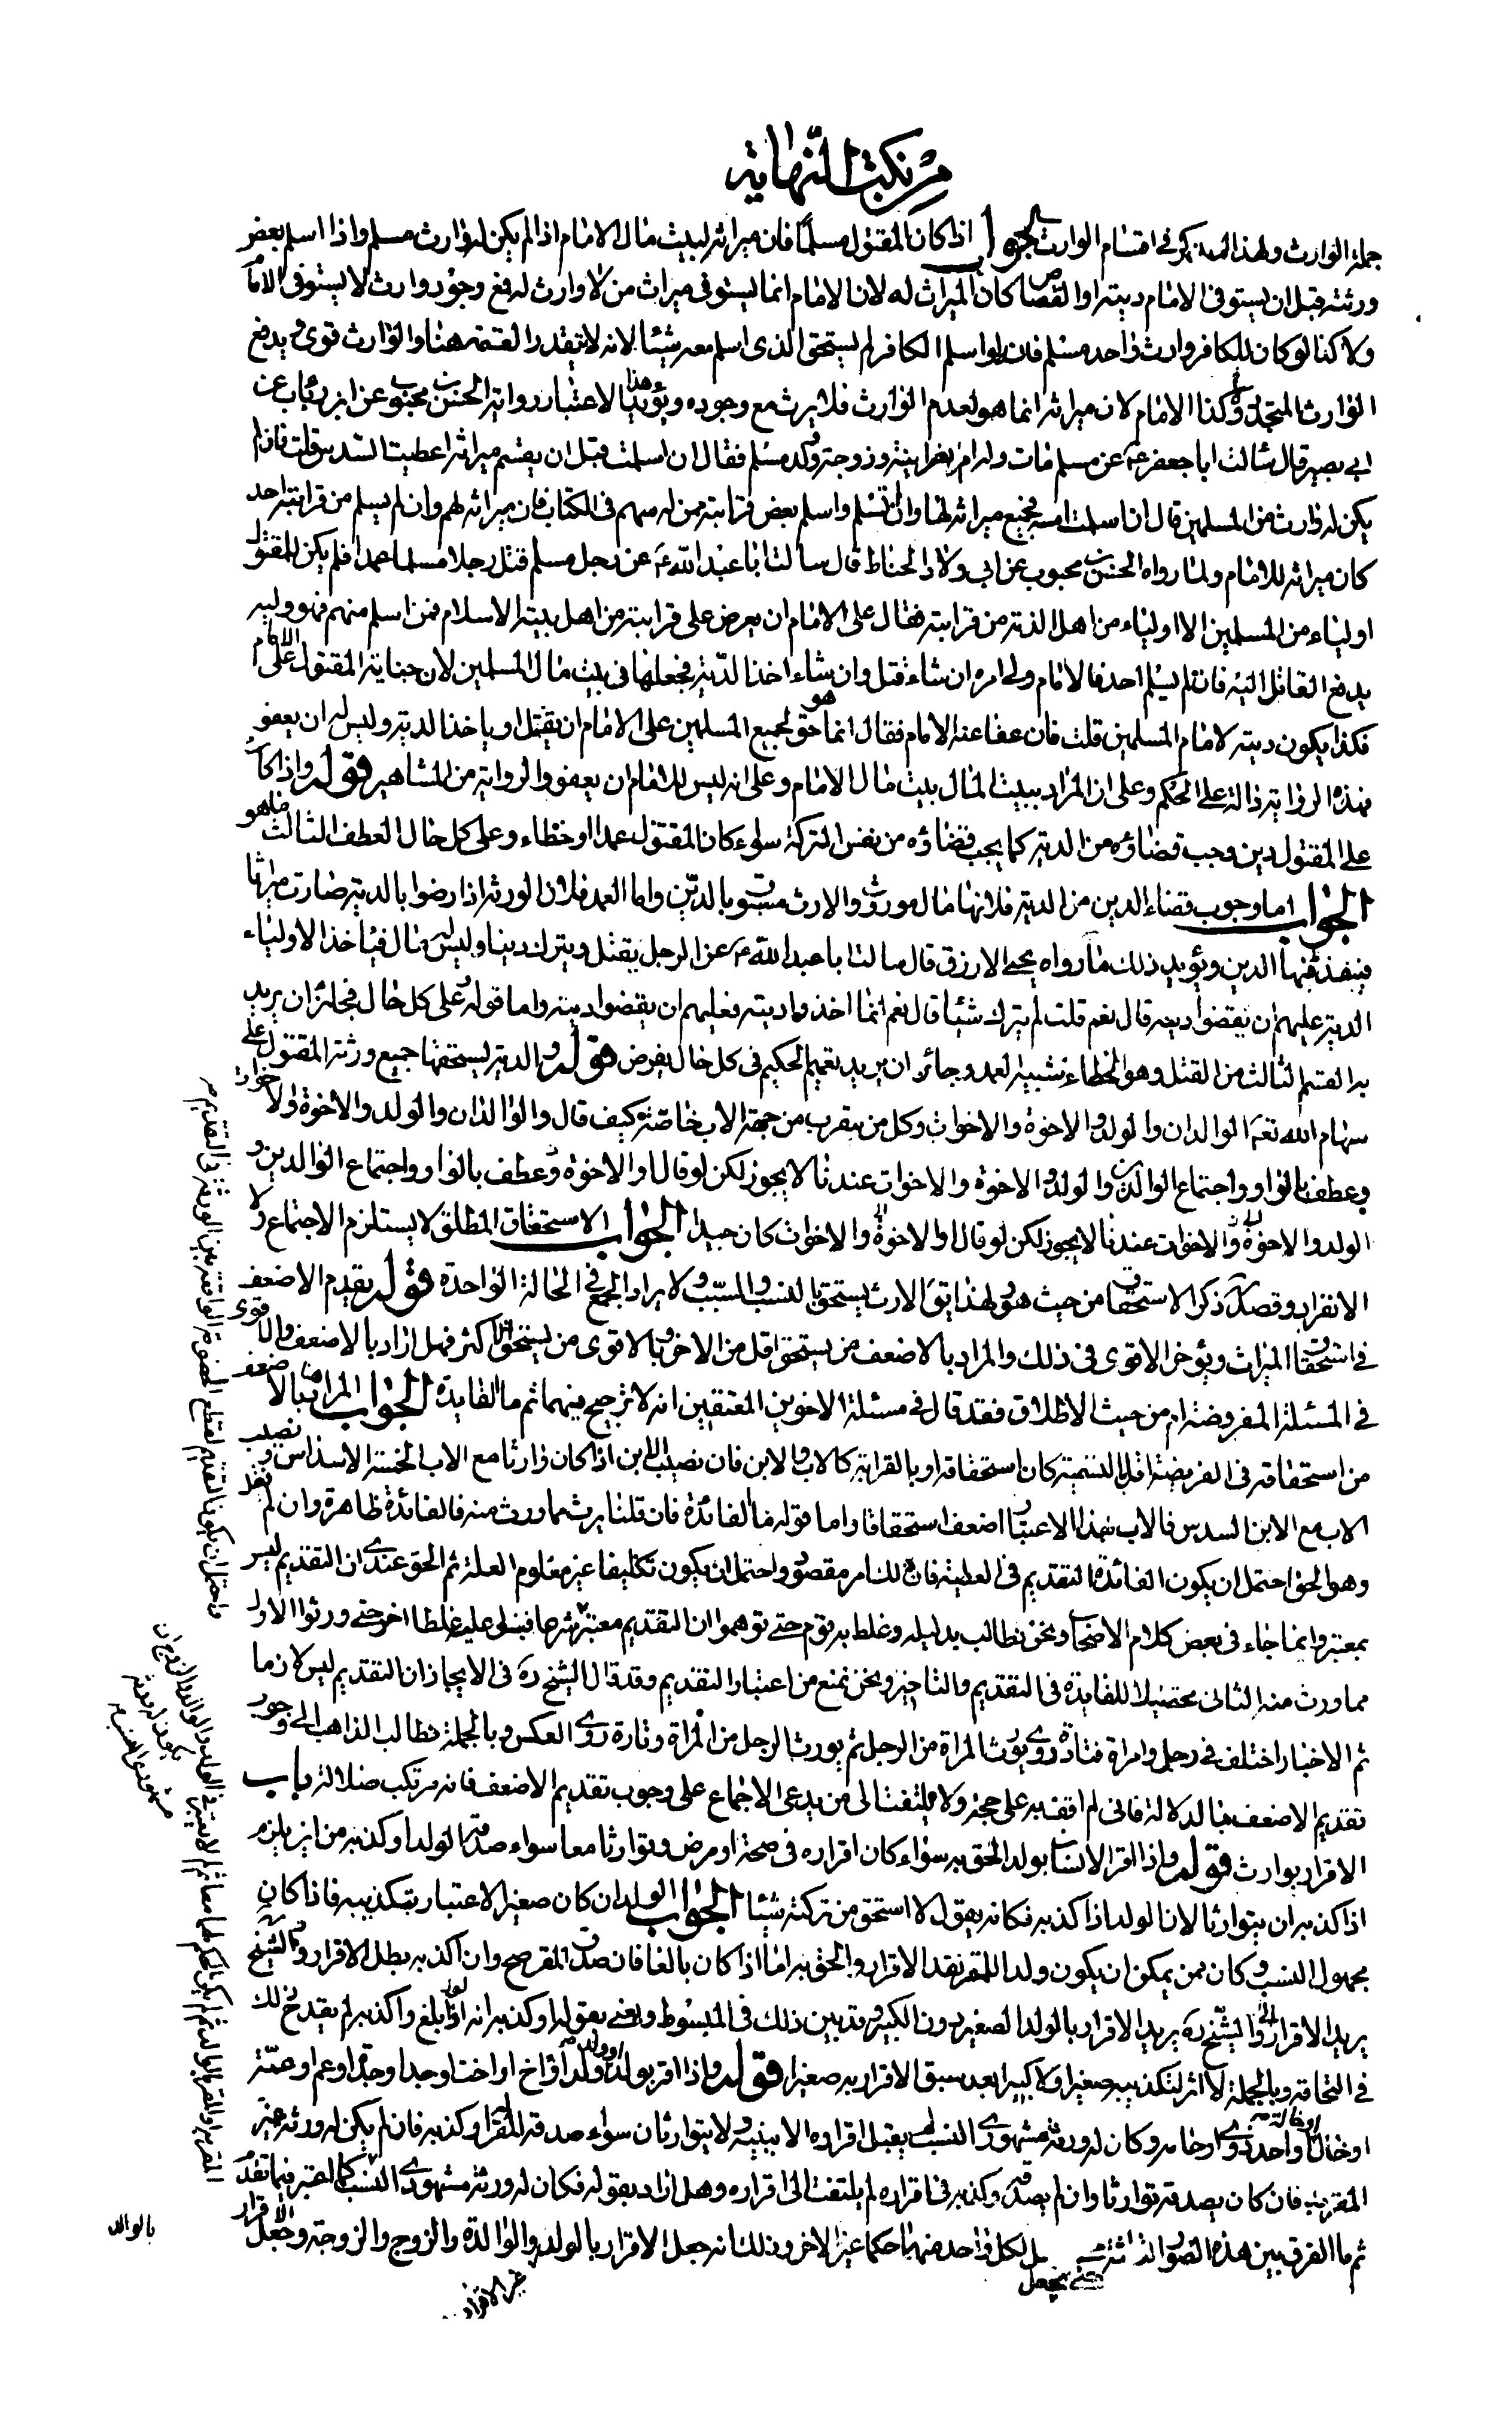 من نكت النهاية
جملة الوارث ولهذا لم يذكر في اقسام الوارث الجواب اذا كان المقتول مسلما فان ميراثه لبيت مال الامام اذا لم يكن له وارث مسلم واذا اسلم بعض
ورثته قبل ان يستوفى الامام ديته او القصاص كان الميراث له لان الامام انما يستوفى ميراث من لا وارث له فمع وجود وارث لا يستوفى الامام
ولا كذا لو كان للكافر وارث واحد مسلم فانه لو اسلم الكافر لم يستحق الذى اسلم معه شيئا لانه لا تتقدر القسمة هنا والوارث قوى يدفع
الوارث المتجدد ولا كذا الامام لان ميراثه انما هو لعدم الوارث فلا يرث مع وجوده ويؤيد هذا الاعتبار رواية الحسن بن محبوب عن ابن رئاب عن
ابى بصير قال سالت ابا جعفر ع عن مسلم مات وله ام نصرانية وزوجة وولد مسلم فقال ان اسلمت قبل ان يقسم ميراثه اعطيت السدس قلت فان لم
يكن له وارث من المسلمين قال ان اسلمت امه فجميع ميراثه لها وان لم تسلم واسلم بعض قرابته ممن له سهم فى الكتاب فان ميراثه لهم وان لم يسلم من قرابته احد
كان ميراثه للامام ولما رواه الحسن بن محبوب عن ابى ولاد الحناط قال سالت ابا عبد الله ع عن رجل مسلم قتل رجلا مسلما عمدا فلم يكن للمقتول
اولياء من المسلمين الا اولياء من اهل الذمة من قرابته فقال على الامام ان يعرض على قرابته من اهل بيته الاسلام فمن اسلم منهم فهو وليه
يدفع القاتل اليه فان لم يسلم احد فالامام ولى امره ان شاء قتل وان شاء اخذ الدية فجعلها فى بيت مال المسلمين لان جناية المقتول على الامام
فكذا يكون ديته لامام المسلمين قلت فان عفا عنه الامام فقال انما هو حق لجميع المسلمين على الامام ان يقتل او ياخذ الدية وليس له ان يعفو
فهذه الرواية دالة على الحكم وعلى ان المراد ببيت المال بيت مال الامام وعلى انه ليس للامام ان يعفو والرواية من المشاهير قوله واذا كان
على المقتول دين وجب قضاؤه من الدية كما يجب قضاؤه من نفس التركة سواء كان المقتول عمدا او خطاء وعلى كل حال العطف الثالث ما هو
الجواب اما وجوب قضاء الدين من الدية فلانها مال موروث والارث مسبوق بالدين واما العمد فلان الورثة اذا رضوا بالدية صارت ميراثا
فينفذ منها الدين ويؤيد ذلك ما رواه يحيى الازرق قال سالت ابا عبد الله ع عن الرجل يقتل ويترك دينا وليس له مال فياخذ الاولياء
الدية عليهم ان يقضوا دينه قال نعم قلت لم يترك شيئا قال نعم انما اخذوا ديته فعليهم ان يقضوا دينه واما قوله وعلى كل حال فجائز ان يريد
به القسم الثالث من القتل وهو الخطاء شبيه العمد وجائز ان يريد تعميم الحكم فى كل حال يفرض قوله والدية يستحقها جميع ورثة المقتول على
سهام الله تعم الوالدان والولد والاخوة والاخوات وكل من يتقرب من جهة الاب خاصة كيف قال والوالدان والولد والاخوة والاخوات
وعطف بالواو واجتماع الوالدين والولد والاخوة والاخوات عندنا لا يجوز لكن لو قال او الاخوة وعطف بالواو واجتماع الوالدين و
الولد والاخوة والاخوات عندنا لا يجوز لكن لو قال او الاخوة والاخوات كان جيدا الجواب الاستحقاق المطلق لا يستلزم الاجتماع ولا
الانفراد وقصده ذكر الاستحقاق من حيث هو ولهذا يق الارث يستحق بالنسب والسبب ولا يراد الجمع فى الحالة الواحدة قوله يقدم الاضعف
فى استحقاق الميراث ويؤخر الاقوى فى ذلك والمراد بالاضعف من يستحق اقل من الاخر وبالاقوى من يستحق اكثر فهل اراد بالاضعف والاقوى
فى المسئلة المفروضة ام من حيث الاطلاق فقد قال فى مسئلة الاخوين المعتقين انه لا ترجيح بينهما ثم ما الفايدة الجواب المراد بالاضعف
من استحقاقه فى الفريضة اقل بالتسمية كان استحقاقه او بالقرابة كالاب والابن فان نصيب الابن اذا كان وارثا مع الاب الخمسة الاسداس ونصيب
الاب مع الابن السدس فالاب بهذا الاعتبار اضعف استحقاقا واما قوله ما الفائدة فان قلنا يرث مما ورث منه فالفائدة ظاهرة وان لم نقل
وهو الحق احتمل ان يكون الفائدة التقديم فى العطية فان ذلك امر مقصود واحتمل ان يكون تكليفا غير معلوم العلة ثم الحق عندى ان التقديم ليس
بمعتبر وانما جاء فى بعض كلام الاصحاب ونحن نطالب بدليله وغلط به قوم حتى توهموا ان التقديم معتبر شرعا فبنى عليه غلطا اخر حتى ورثوا الاول
مما ورث منه الثانى تحصيلا للفايدة فى التقديم والتاخير ونحن نمنع من اعتبار التقديم وقد قال الشيخ ره فى الايجاز ان التقديم ليس لازما
ثم الاخبار اختلف فى رجل وامراة فتارة روى يورث المراة من الرجل ثم يورث الرجل من المراة وتارة روى العكس وبالجملة نطالب الذاهب الى وجوب
تقديم الاضعف بالدلالة فانى لم اقف به على حجة ولا يلتفت الى من يدعى الاجماع على وجوب تقديم الاضعف فانه مرتكب ضلالة باب
الاقرار بوارث قوله واذا اقر الانسان بولد الحق به سواء كان اقراره فى صحة او مرض وتوارثا معا سواء صدقه الولد او كذبه من اين يلزم
اذا كذبه ان يتوارثا لان الولد اذا كذبه فكانه يقول لا استحق من تركته شيئا الجواب الولد ان كان صغيرا لا اعتبار بتكذيبه فاذا كان
مجهول النسب وكان ممن يمكن ان يكون ولدا للمقر نفذ الاقرار والحق به اما اذا كان بالغا فان صدق المقر صح وان اكذبه بطل الاقرار والشيخ
يريد الاقرار والشيخ ره يريد الاقرار بالولد الصغير دون الكبير وقد بين ذلك فى المبسوط ويعنى بقوله او كذبه انه لو بلغ واكذبه لم يقدح ذلك
فى التحاقه وبالجملة لا اثر لتكذيبه صغيرا ولا كبيرا بعد سبق الاقرار به صغيرا قوله واذا اقر بولد ولد او اخ او اخت او جد او جدة او عم او عمة
او خال او خالة او احد ذوى ارحامه وكان له ورثة مشهورى النسب لم يقبل اقراره الا ببينة ولا يتوارثان سواء صدقه المقر له او كذبه فان لم يكن له ورثة غير
المقر به فان كان يصدقه توارثا وان لم يصدقه وكذبه فى اقراره لم يلتفت الى اقراره وهل اراد بقوله فكان له ورثة مشهورى النسب كما اعتبر فيما تقدم
ثم ما الفرق بين هذه الصور الثلاثة حتى يجعل لكل واحد منها حكما غير الاخر وذلك انه جعل الاقرار بالولد والوالدة والزوج والزوجة وجعل الاقرار
بالوالد